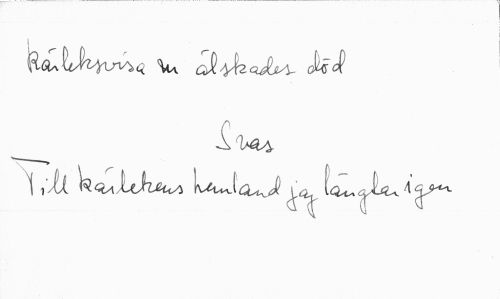 Kärleksvisa m älskades död
Svas
Till kärlekens hemland jag längtar igen